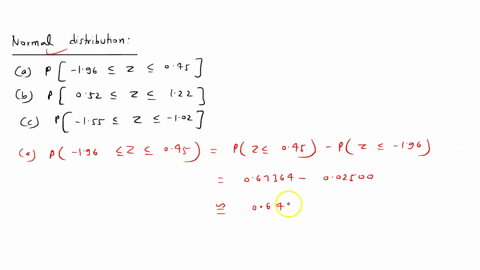 Normal distribution:
(a) P[ -1.96 ≤ Z ≤ 0.45 ]
(b) P[ 0.52 ≤ Z ≤ 1.22 ]
(c) P[ -1.55 ≤ Z ≤ -1.02 ]
(a) P( -1.96 ≤ Z ≤ 0.45 ) = P( Z ≤ 0.45 ) - P( Z ≤ -1.96 )
= 0.67364 - 0.02500
≅ 0.64